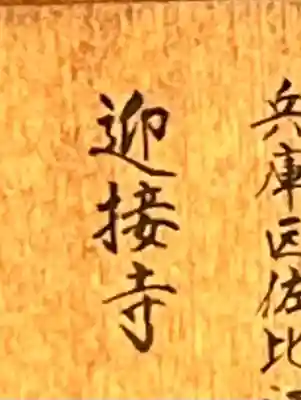 兵庫区佐比江
迎接寺